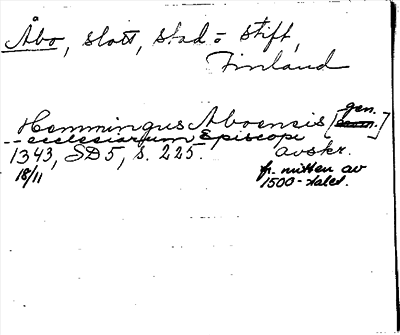 Åbo, slott, stad = stift,
Finland
Hemmingus Aboensis [gen.]
-- ecclesiarum Episcopi
1343, SD5, s. 225. avskr.
18/11 fr. mitten av
1500-talet.